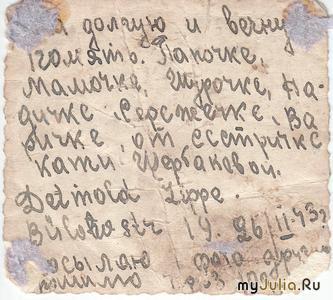 долгую и вечну
память. Папочке,
мамочке, Шурочке, На-
дичке, Сережечке, Ва
ричке, от сестричке
Кати Щербаковой.
Detmold Lippe.
Bülostastr 19. 26/II-43г.
осылаю фото другое
письмо
myJulia.Ru